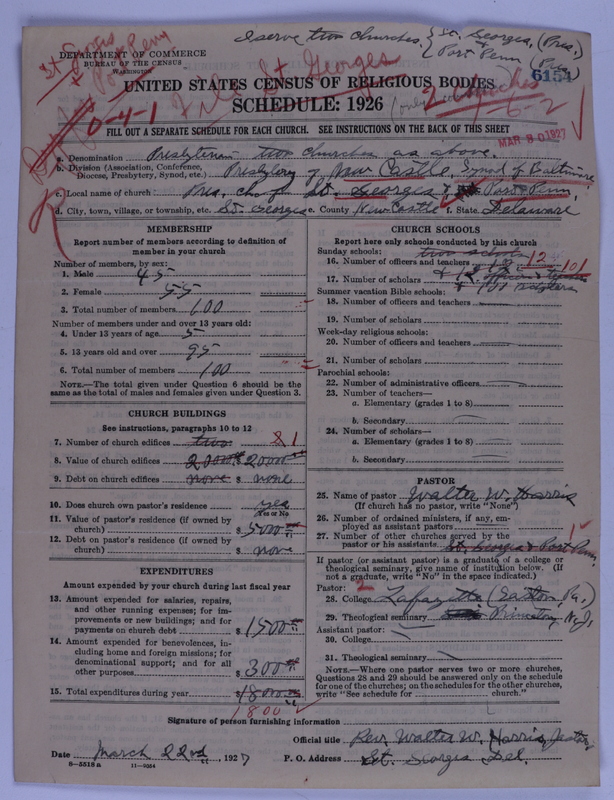 I serve two churches. { St. Georges, (Pres.)
& Port Penn (Pres.)
DEPARTMENT OF COMMERCE
BUREAU OF THE CENSUS
WASHINGTON
St Georges
+ Port Penn.
6154
UNITED STATES CENSUS OF RELIGIOUS BODIES
File St Georges
SCHEDULE: 1926
2 churches
0-4-1
6-2
FILL OUT A SEPARATE SCHEDULE FOR EACH CHURCH. SEE INSTRUCTIONS ON THE BACK OF THIS SHEET
MAR 30 1927
a. Denomination Presbyterian two churches as above.
b. Division (Association, Conference, Diocese, Presbytery, Synod, etc.) Presbytery of New Castle, Synod of Baltimore
c. Local name of church Pres. ch. of St. Georges & Port Penn,
d. City, town, village, or township, etc. St. Georges e. County New Castle f. State Delaware
MEMBERSHIP
Report number of members according to definition of member in your church
Number of members, by sex:
1. Male 45
2. Female 55
3. Total number of members 100
Number of members under and over 13 years old:
4. Under 13 years of age 5
5. 13 years old and over 95
6. Total number of members 100
NOTE.—The total given under Question 6 should be the same as the total of males and females given under Question 3.
CHURCH BUILDINGS
See instructions, paragraphs 10 to 12
7. Number of church edifices two 1
8. Value of church edifices 20000 $ 20000
9. Debt on church edifices none $ none
10. Does church own pastor's residence? yes
Yes or No
11. Value of pastor's residence (if owned by church) $ 5000
12. Debt on pastor's residence (if owned by church) $ none
EXPENDITURES
Amount expended by your church during last fiscal year
13. Amount expended for salaries, repairs, and other running expenses; for improvements or new buildings; and for payments on church debt $ 1500
14. Amount expended for benevolences, including home and foreign missions; for denominational support; and for all other purposes $ 300
15. Total expenditures during year $ 1800
1800
CHURCH SCHOOLS
Report here only schools conducted by this church
Sunday schools: two schools
16. Number of officers and teachers 12
17. Number of scholars 101
& 101 scholars
Summer vacation Bible schools:
18. Number of officers and teachers
19. Number of scholars
Week-day religious schools:
20. Number of officers and teachers
21. Number of scholars
Parochial schools:
22. Number of administrative officers
23. Number of teachers—
a. Elementary (grades 1 to 8)
b. Secondary
24. Number of scholars—
a. Elementary (grades 1 to 8)
b. Secondary
PASTOR
25. Name of pastor Walter W. Harris
(If church has no pastor, write "None")
26. Number of ordained ministers, if any, employed as assistant pastors
27. Number of other churches served by the pastor or his assistants St. Georges & Port Penn. 1
If pastor (or assistant pastor) is a graduate of a college or theological seminary, give name of institution below. (If not a graduate, write "No" in the space indicated.)
Pastor: 2
28. College Lafayette (Easton, Pa.,)
29. Theological seminary Princeton N.J.
Assistant pastor:
30. College
31. Theological seminary
NOTE.—Where one pastor serves two or more churches, Questions 28 and 29 should be answered only on the schedule for one of the churches; on the schedules for the other churches, write "See schedule for church."
Signature of person furnishing information
Official title Rev. Walter W. Harris, Pastor
Date March 22nd, 1927 P. O. Address St. Georges Del.
8—5518 a 11—9254